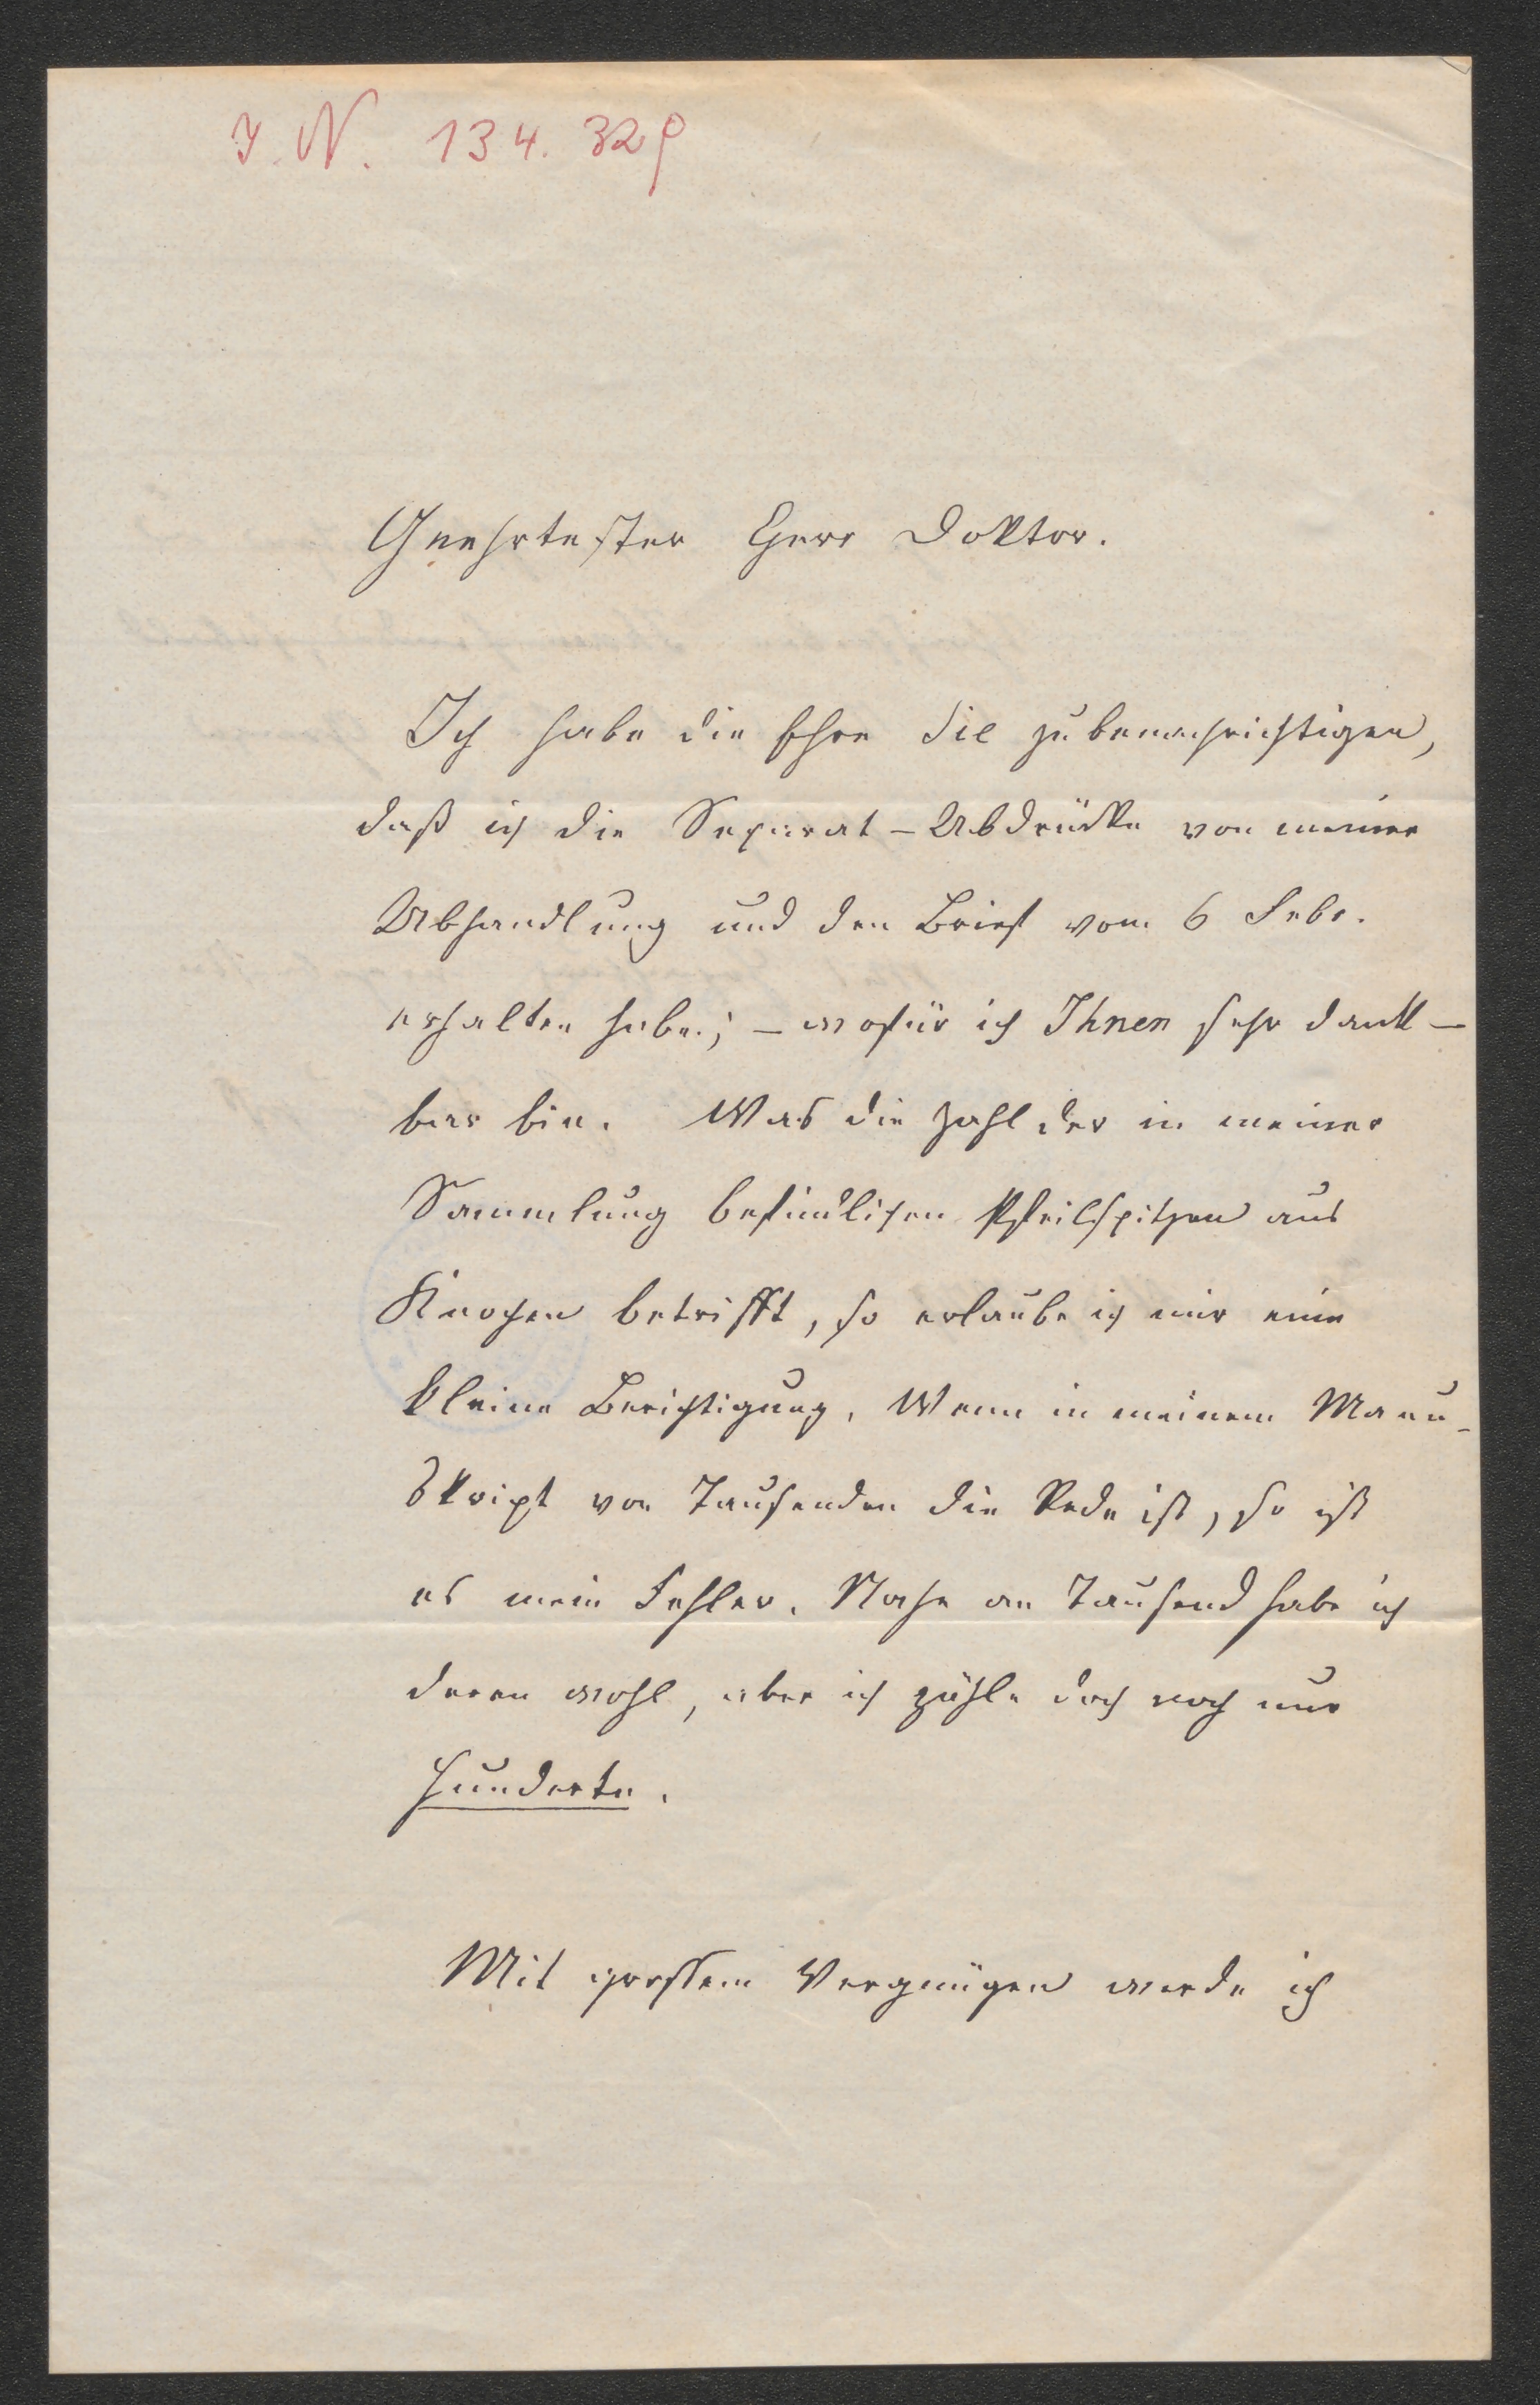 J. N. 134.329
Geehrtester Herr Doktor.
Ich habe die Ehre Sie zu benachrichtigen,
daß ich die Separat-Abdrücke von meiner
Abhandlung und den Brief vom 6 Febr.
erhalten habe; – wofür ich Ihnen sehr dank-
bar bin. Was die Zahl der in meiner
Sammlung befindlichen Pfeilspitzen aus
Knochen betrifft, so erlaube ich mir eine
kleine Berichtigung. Wenn in meinem Manu-
skript von Tausenden die Rede ist, so ist
es mein Fehler. Nahe an Tausend habe ich
deren wohl, aber ich zähle doch noch nur
Hunderte.
Mit grossem Vergnügen werde ich